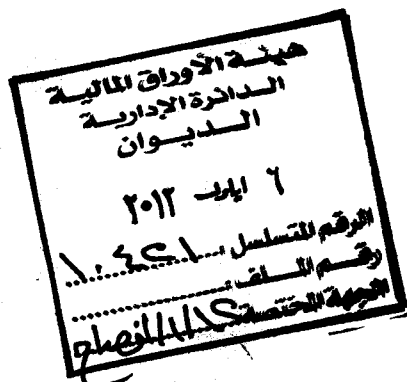 هيئة الأوراق المالية
الدائرة الإدارية
الديوان
٦ ايلول ٢٠١٢
الرقم المتسلسل
رقم الملف
الجهة المختصة الافصاح